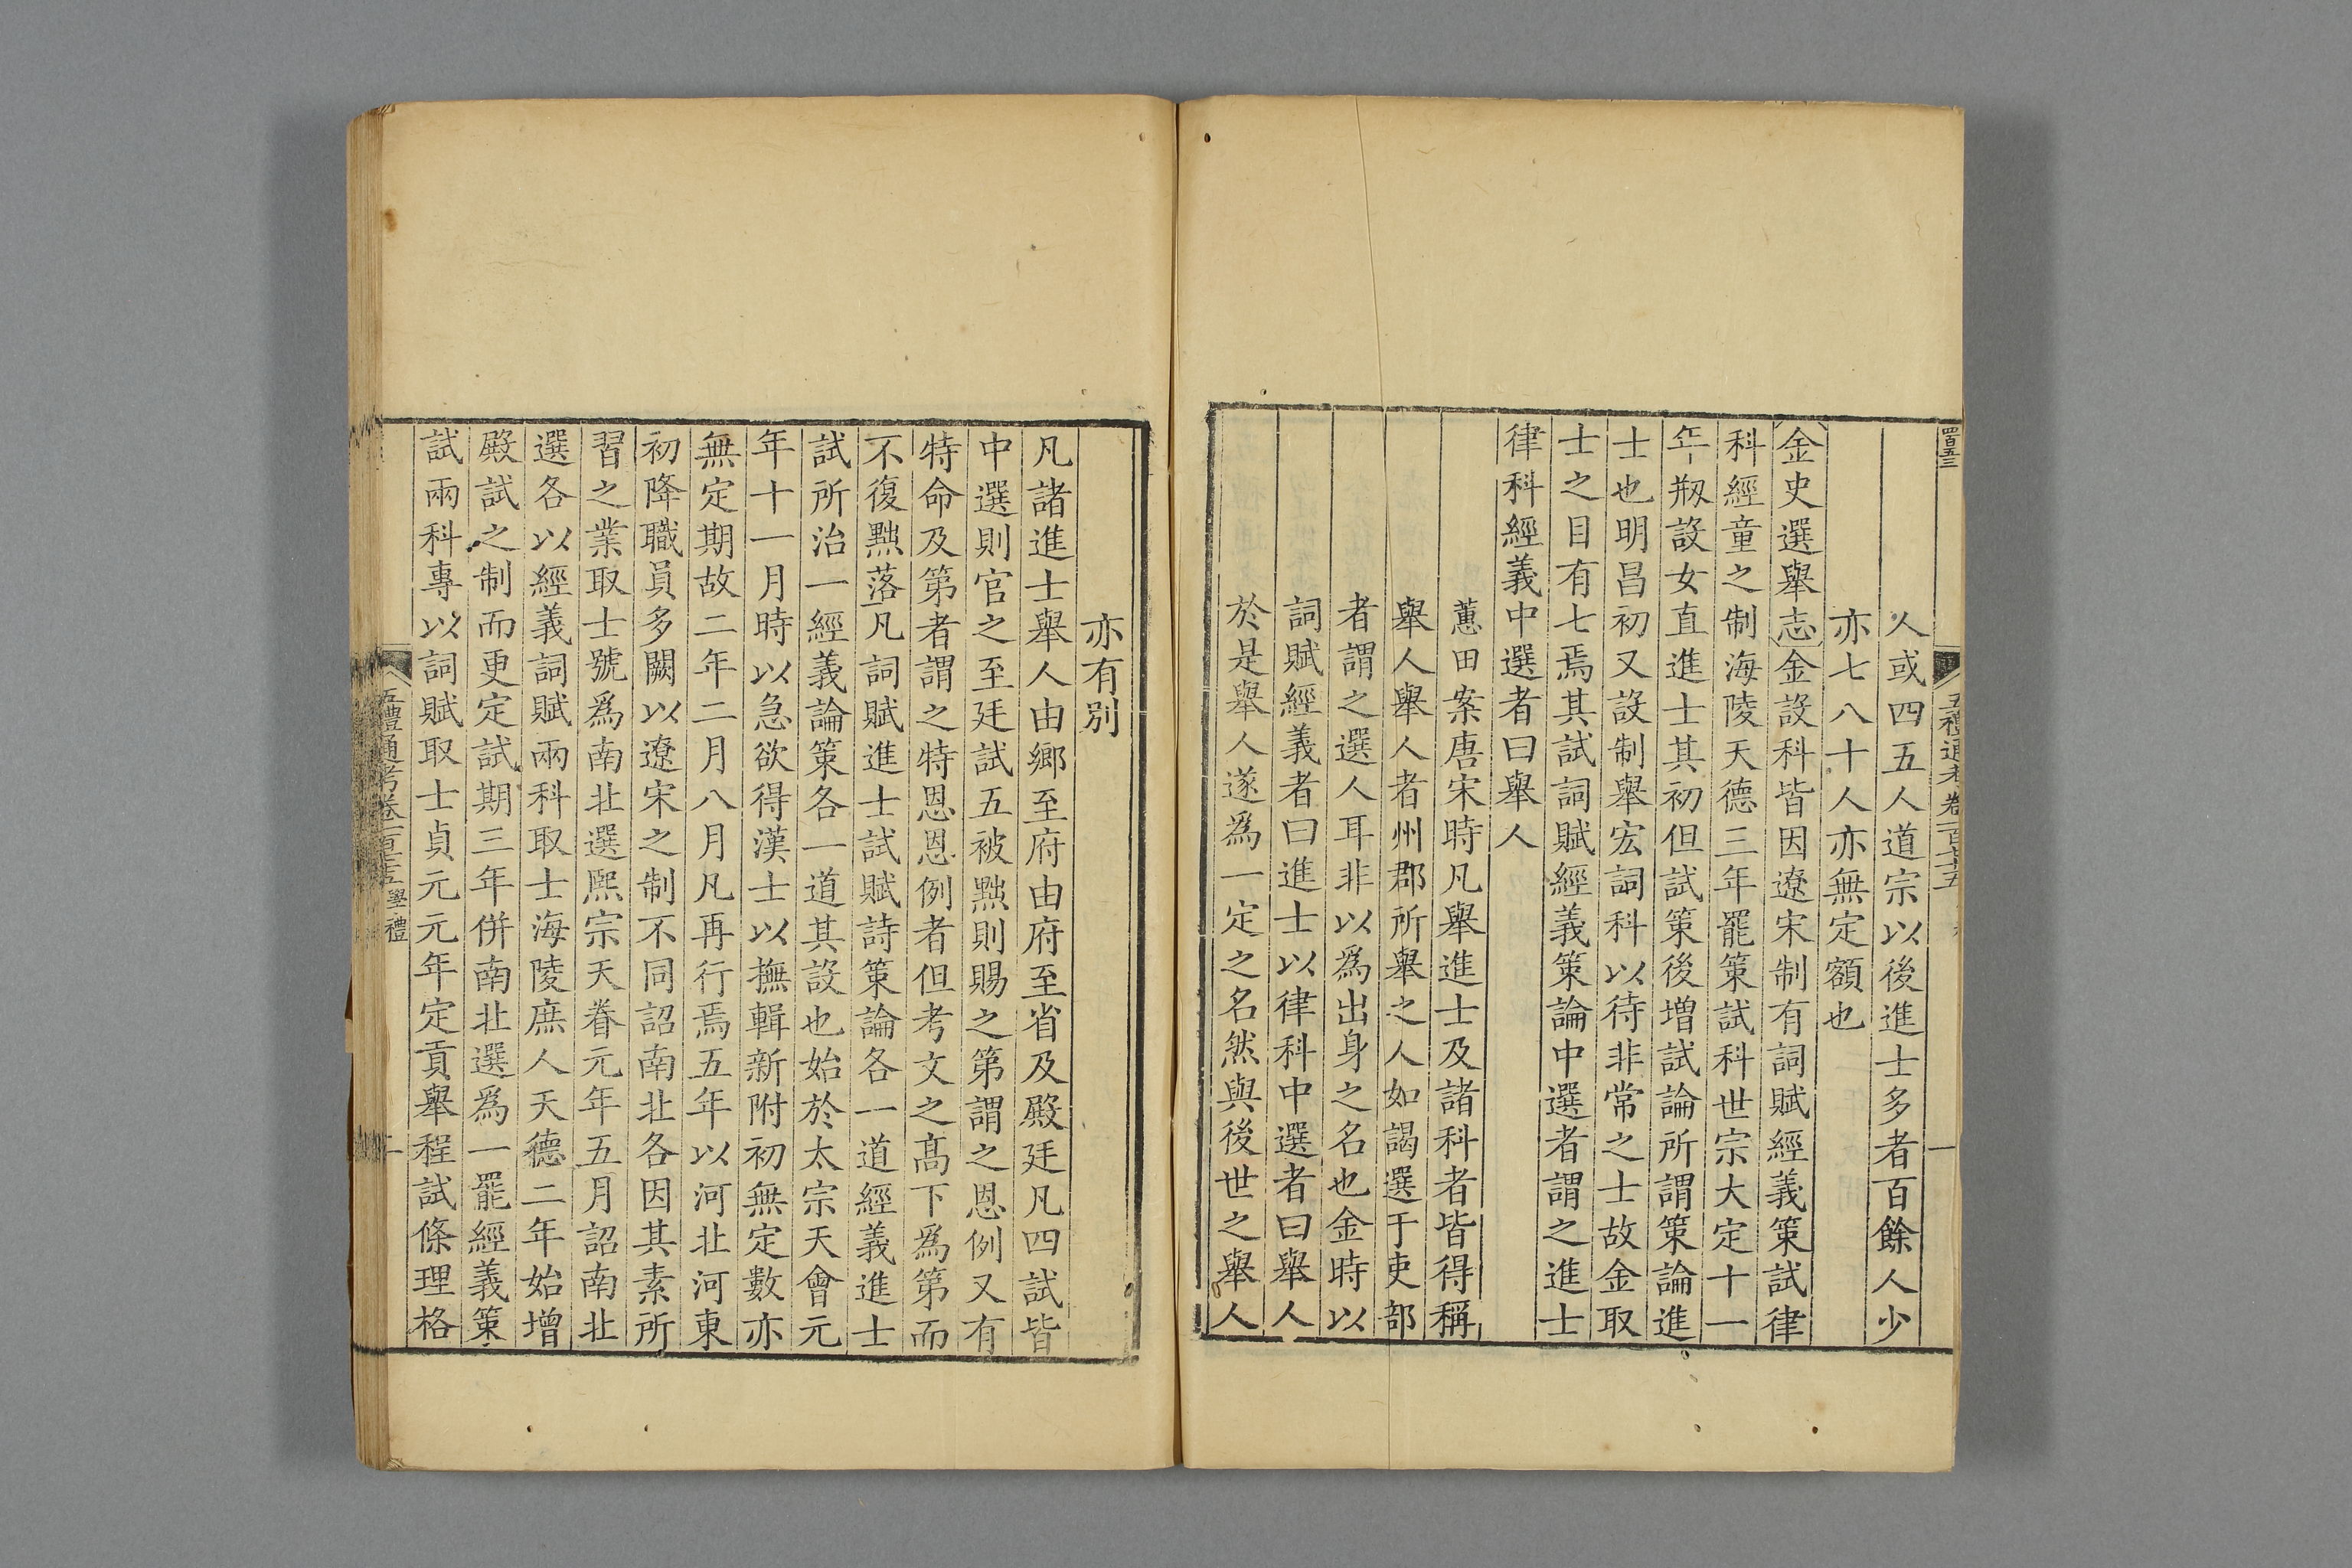 四百五三
五禮通考卷一百七十五
一
人或四五人道宗以後進士多者百餘人少
亦七八十人亦無定額也
金史選舉志金設科皆因遼宋制有詞賦經義策試律
科經童之制海陵天德三年罷策試科世宗大定十一
年刱設女直進士其初但試策後增試論所謂策論進
士也明昌初又設制舉宏詞科以待非常之士故金取
士之目有七焉其試詞賦經義策論中選者謂之進士
律科經義中選者曰舉人
蕙田案唐宋時凡舉進士及諸科者皆得稱
舉人舉人者州郡所舉之人如謁選于吏部
者謂之選人耳非以為出身之名也金時以
詞賦經義者曰進士以律科中選者曰舉人
於是舉人遂為一定之名然與後世之舉人
亦有別
凡諸進士舉人由鄉至府由府至省及殿廷凡四試皆
中選則官之至廷試五被黜則賜之第謂之恩例又有
特命及第者謂之特恩恩例者但考文之高下為第而
不復黜落凡詞賦進士試賦詩策論各一道經義進士
試所治一經義論策各一道其設也始於太宗天會元
年十一月時以急欲得漢士以撫輯新附初無定數亦
無定期故二年二月八月凡再行焉五年以河北河東
初降職員多闕以遼宋之制不同詔南北各因其素所
習之業取士號為南北選熙宗天眷元年五月詔南北
選各以經義詞賦兩科取士海陵庶人天德二年始增
殿試之制而更定試期三年併南北選為一罷經義策
試兩科專以詞賦取士貞元元年定貢舉程試條理格
五禮通考卷一百七十五 學禮